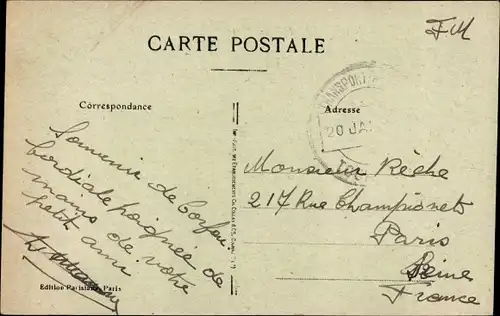 FM
CARTE POSTALE
Correspondance
Adresse
TRANSPORT
20 JA
Souvenir de Corfou
Cordiale poignée de
mains de votre
petit ami
Monsieur Rèche
217 Rue Championet
Paris
Seine
France
Edition Parisiana, Paris